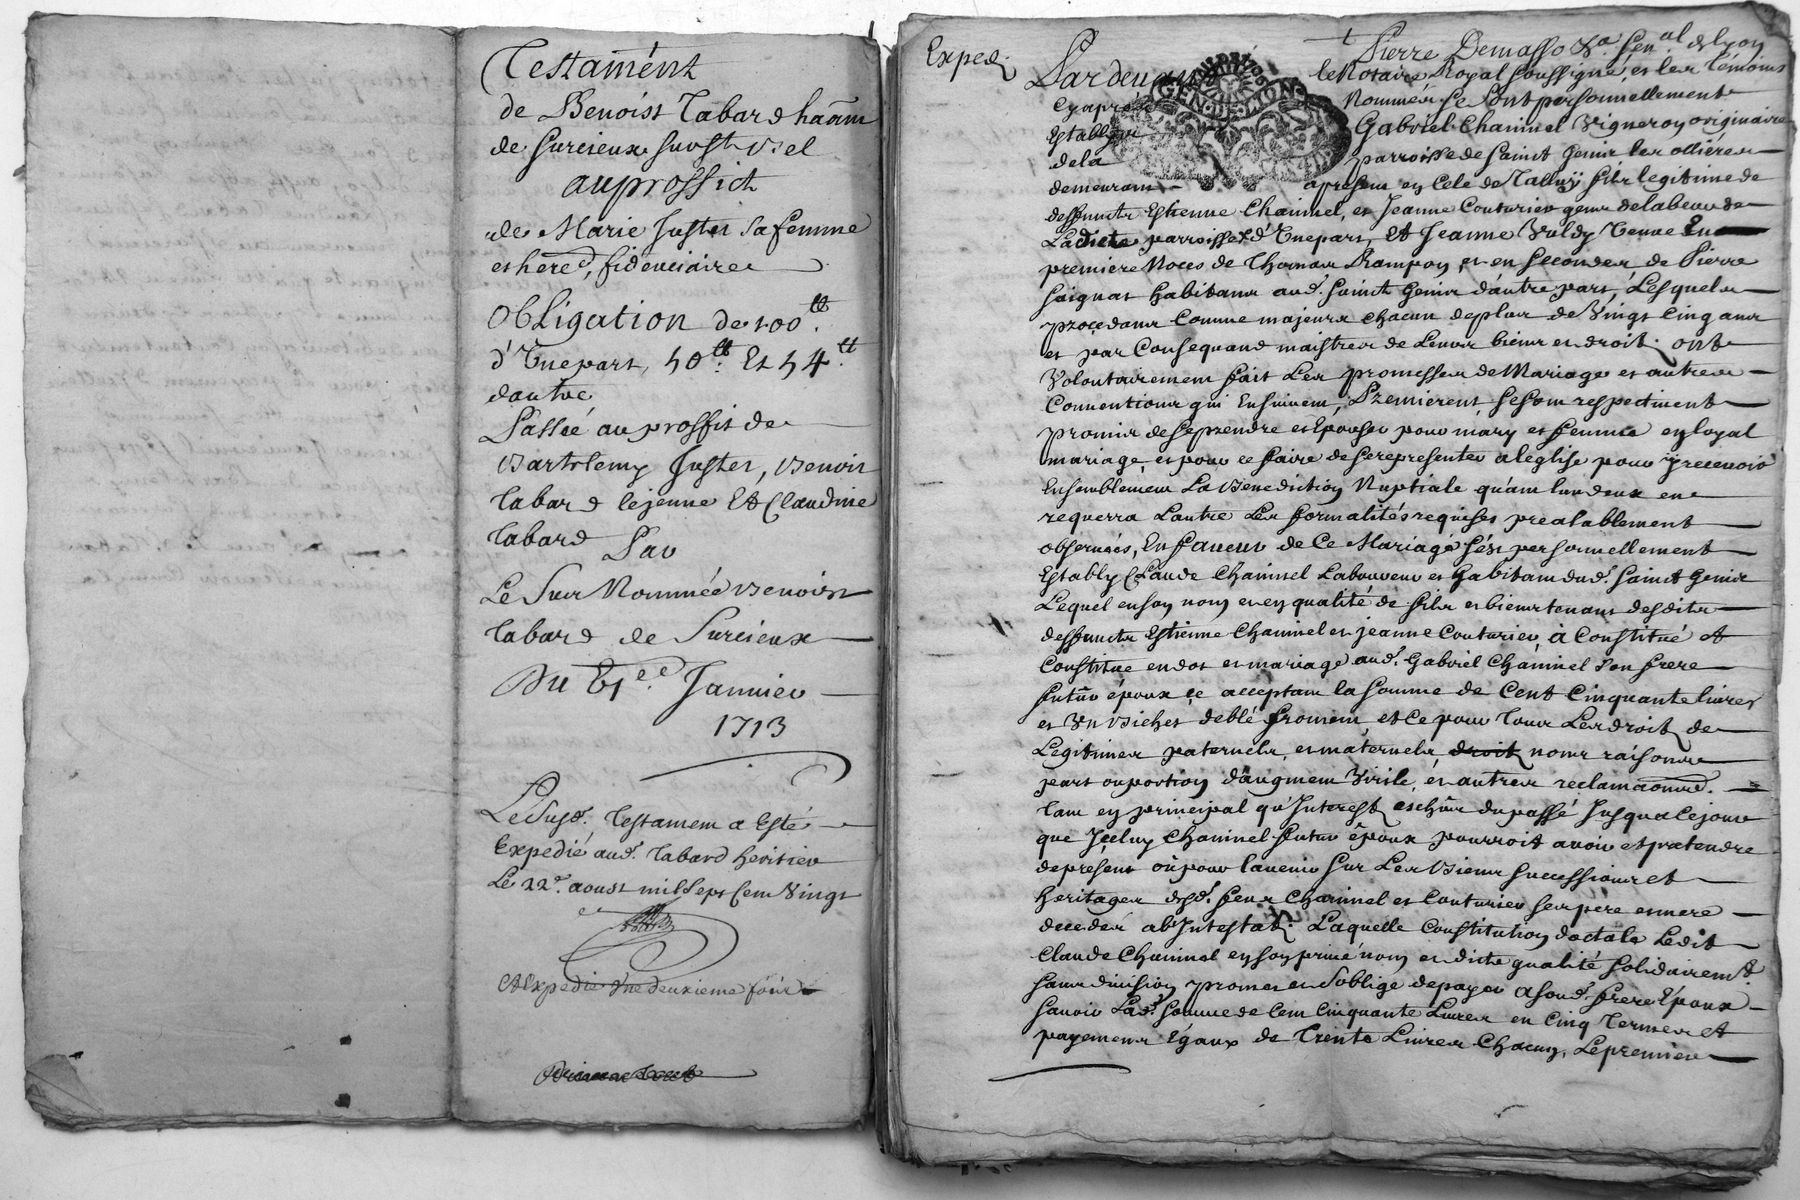 Testament
de Benoist Tabard haãm
de Surcieux sur St bel
au proffict
de Marie Juster sa femme
et hered. fidenciaire
Obligation de 100tt.
d'Une part, 50tt. Et 54tt.
dautre
Passée au proffit de
Bartelemy Juster, Benoit
Tabard lejeune Et Claudine
Tabard Par
Le Sur Nommée Benoist
Tabard de Surcieux
Du Janvier
1713
Le Susd. Testament a Esté
Expedié aud. Tabard heritier
Le 22e. aoust mil Sept Cent Vingt
et Expedié Une deuxieme fois
Exped.
Pierre Demasso
Pardevant le Notaire Royal soussigné, et les témoins
cy apres Nommés se sont personnellement
Establys Gabriel Chaninel Vigneron originaire
de la parroisse de Sainct Genis les ollieres
demeurant apresent en Cele de Talluÿ fils legitime de
deffuncts Estienne Chaninel, et Jeanne Couturier gens de labeur de
Ladicte parroisse d'Une part, Et Jeanne Veuve En
premiere Noces de Thomas Rampon et en Secondes, de Pierre
Saignat habitans aud. Sainct Genis d'autre part, Lesquels
procedans Comme majeurs chacun de plus de Vingt Cinq ans
et par Consequand maistres de Leurs biens et droits. ont
Volontairement fait Les promesses de Mariage et autres
Conventions qui Ensuivent, Premierent se sont respectivent
promis de se prendre et Epouser pour mary et femme en loyal
mariage, et pour ce faire de se representer a leglise pour y recevoir
Ensemblement La Benediction Nuptiale qu'ant l'un deux en
requerra Lautre Les formalités requises prealablement
observées, En faveur de Ce Mariage s'est personnellement
Estably Claude Chaninel Laboureur et habitant dud. Sainct Genis
Lequel en son nom et en qualité de fils et bien tenant desdits
deffuncts Estienne Chaninel et jeanne Couturier à Constitué et
Constitue en dot et mariage aud. Gabriel Chaninel son frere
futur époux ce acceptant la somme de Cent Cinquante livres
et Un Bichet de blé froment, et Ce pour Tous Les droits de
Legitimes paternels, et maternels droits noms raisons
part ou portion d'augment Virile, et autres reclamaons.
tant en principal qu'Interests eschus du passé Jusqu'a ce jour
que Jceluy Chaninel futur époux pourroit avoir et pretendre
de present ou pour lavenir sur Les Biens successions et
heritages desd. feux Chaninel et Couturier ses pere et mere
decedés ab Intestat. Laquelle Constitution doctale Ledit
Claude Chaninel en son privé nom et dicte qualité solidairemt.
sans division promet et S'oblige de payer a sond. frere Epoux
Savoir Lad. somme de Cent Cinquante Livres en Cinq Termes et
payemens Egaux de Trente Livres Chacun, Le premier